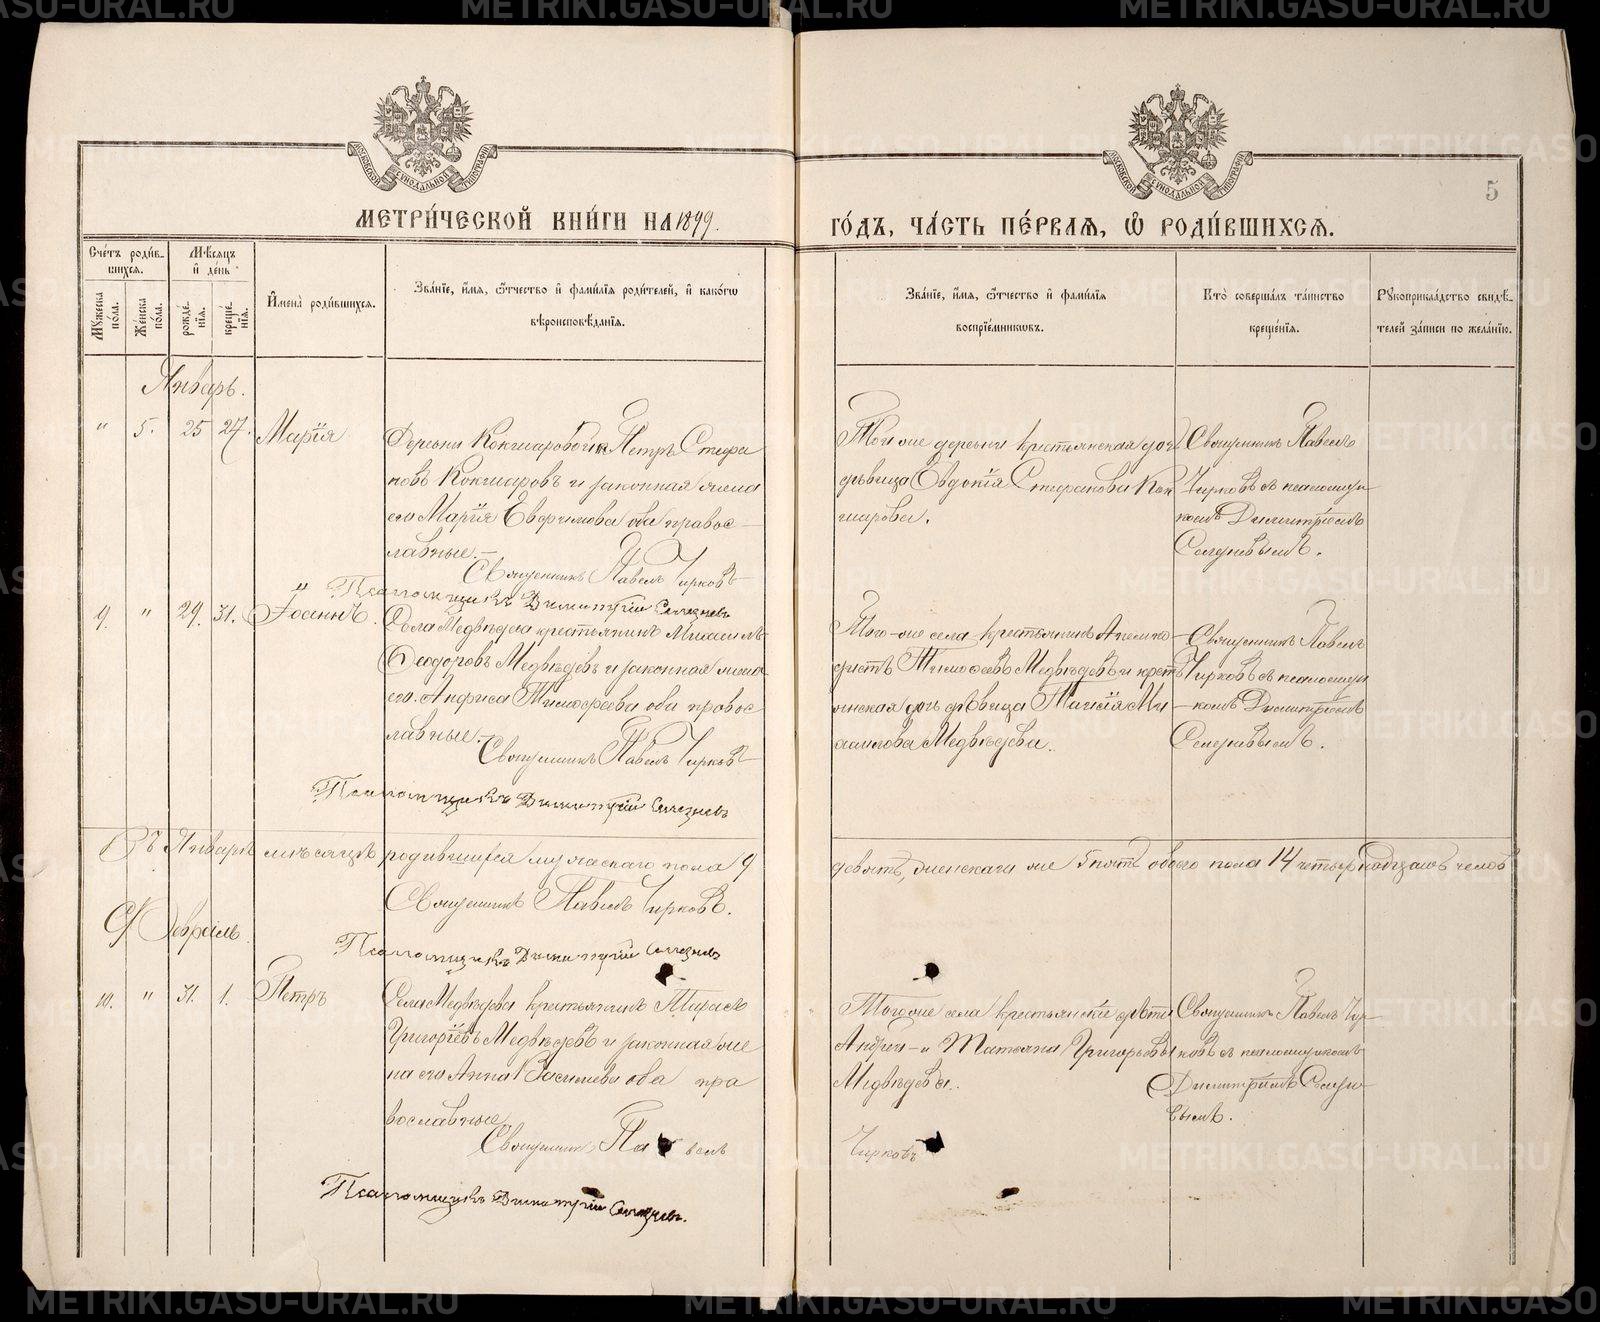 METRIKI.GASO-URAL.RU
МОСКОВСКОЙ СѴНОДАЛЬНОЙ ТИПОГРАФІИ
МОСКОВСКОЙ СѴНОДАЛЬНОЙ ТИПОГРАФІИ
5
МЕТРИ́ЧЕСКОЙ КНИ́ГИ НА 1899.
ГО́ДЪ, ЧА́СТЬ ПЕ́РВАЯ, Ѡ҆ РОДИ́ВШИХСЯ.
Сче́тъ роди́в-
шихся.
Мѣ́сяцъ
и҆ де́нь
Мꙋ́жеска
по́ла.
Же́нска
по́ла.
рожде́-
нїя.
креще́-
нїя.
И҆мена̀ роди́вшихся.
Зва́нїе, и҆́мя, ѻ҆́тчество и҆ фами́лїя роди́телей, и҆ како́гѡ
вѣроисповѣ́данїя.
Зва́нїе, и҆́мя, ѻ҆́тчество и҆ фами́лїя
воспрїе́мникѡвъ.
Кто̀ соверша́лъ та́инство
креще́нїя.
Рꙋкоприкла́дство свидѣ́-
телей за́писи по жела́нїю.
Январь.
" 5. 25 27. Марія
Деревни Кокшаровой Петръ Стефа
новъ Кокшаровъ и законная жена
его Марія Евфимова оба правос-
лавные.-
Священникъ Павелъ Чирковъ
Псаломщикъ Димитрій Селезневъ
Тойже деревни крестьянская доч
дѣвица Евдокія Стефанова Кок
шарова.
Священникъ Павелъ
Чирковъ съ псаломщи
комъ Димитріемъ
Селезневымъ.
9. " 29. 31. Іоаннъ.
Села Медвѣдева крестьянинъ Михаилъ
Ѳеодоровъ Медвѣдевъ и законная жена
его. Анфиса Тимофеева оба правос
лавные.-
Священникъ Павелъ Чирковъ
Псаломщикъ Димитрій Селезневъ
Того-же села крестьянинъ Аполло-
Тимоѳеевъ Медвѣдевъ и крест
янская дочь дѣвица Таисія Ми
хаилова Медвѣдева.
Священникъ Павелъ
Чирковъ съ псаломщи
-комъ Димитріемъ
Селезневымъ.
Въ Январѣ мѣсяцѣ родившихся мужескаго пола 9
девять, женскаго же 5 пять обоего пола 14 четырнадцать челов
Священникъ Павелъ Чирковъ.
Псаломщикъ Димитрій Селезневъ
Февраль
10. " 31. 1. Петръ
Села Медвѣдева крестьянинъ Тарасъ
Григоріевъ Медвѣдевъ и законная же
на его Анна Васильева оба пра
вославные
Священникъ Павелъ
Чирковъ
Псаломщикъ Димитрій Селезневъ.
Тогоже села крестьянскіе дѣти
Андрей и Татьяна Григорьевы
Медвѣдевы.
Священникъ Павелъ Чир-
ковъ съ псаломщикомъ
Димитріемъ Селезне-
вымъ.